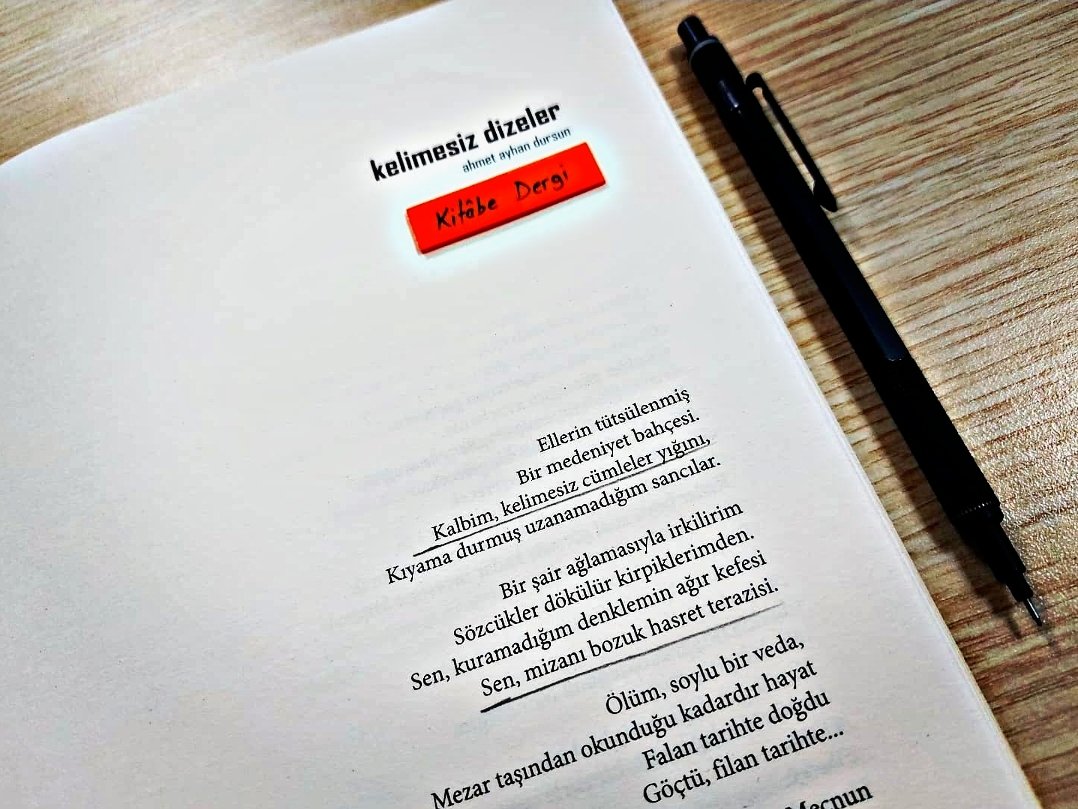 kelimesiz dizeler
ahmet ayhan dursun
Kitâbe Dergi
Ellerin tütsülenmiş
Bir medeniyet bahçesi.
Kalbim, kelimesiz cümleler yığını,
Kıyama durmuş uzanamadığım sancılar.
Bir şair ağlamasıyla irkilirim
Sözcükler dökülür kirpiklerimden.
Sen, kuramadığım denklemin ağır kefesi
Sen, mizanı bozuk hasret terazisi.
Ölüm, soylu bir veda,
Mezar taşından okunduğu kadardır hayat
Falan tarihte doğdu
Göçtü, filan tarihte...
Mecnun